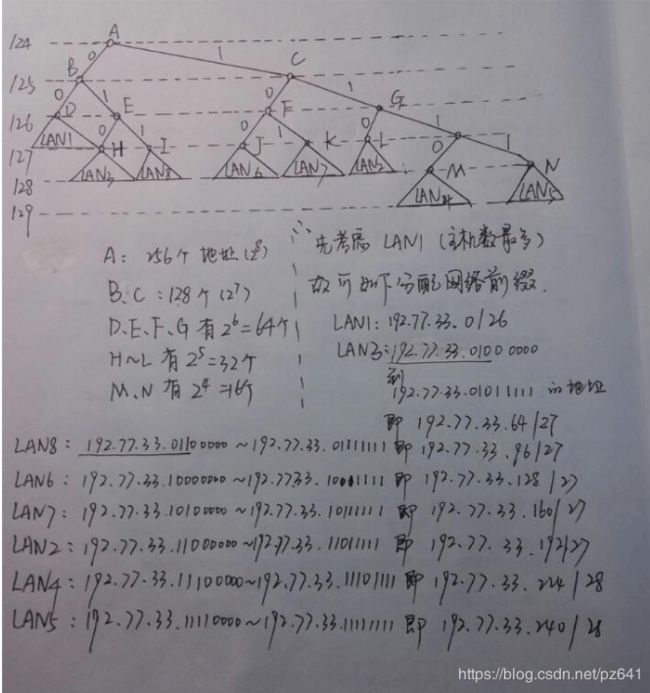 /24 A
0 1
/25 B C
0 1 0 1
/26 D E F G
0 1 0 1 0 1
LAN1 H I J K L 0 1
/27
LAN3 LAN8 LAN6 LAN7 LAN2 M N
/28
LAN4 LAN5
/29
A: 256个地址(2⁸)
B、C: 128个(2⁷)
D、E、F、G 有2⁶=64个
H~L 有2⁵=32个
M、N 有2⁴=16个
∵先考虑 LAN1 (主机数最多)
故可如下分配网络前缀.
LAN1: 192.77.33.0/26
LAN3: 192.77.33.01000000
到
192.77.33.01011111 的地址
即 192.77.33.64/27
LAN8: 192.77.33.01100000~192.77.33.01111111 即 192.77.33.96/27
LAN6: 192.77.33.10000000~192.77.33.10011111 即 192.77.33.128/27
LAN7: 192.77.33.10100000~192.77.33.10111111 即 192.77.33.160/27
LAN2: 192.77.33.11000000~192.77.33.11011111 即 192.77.33.192/27
LAN4: 192.77.33.11100000~192.77.33.11101111 即 192.77.33.224/28
LAN5: 192.77.33.11110000~192.77.33.11111111 即 192.77.33.240/28
https://blog.csdn.net/pz641